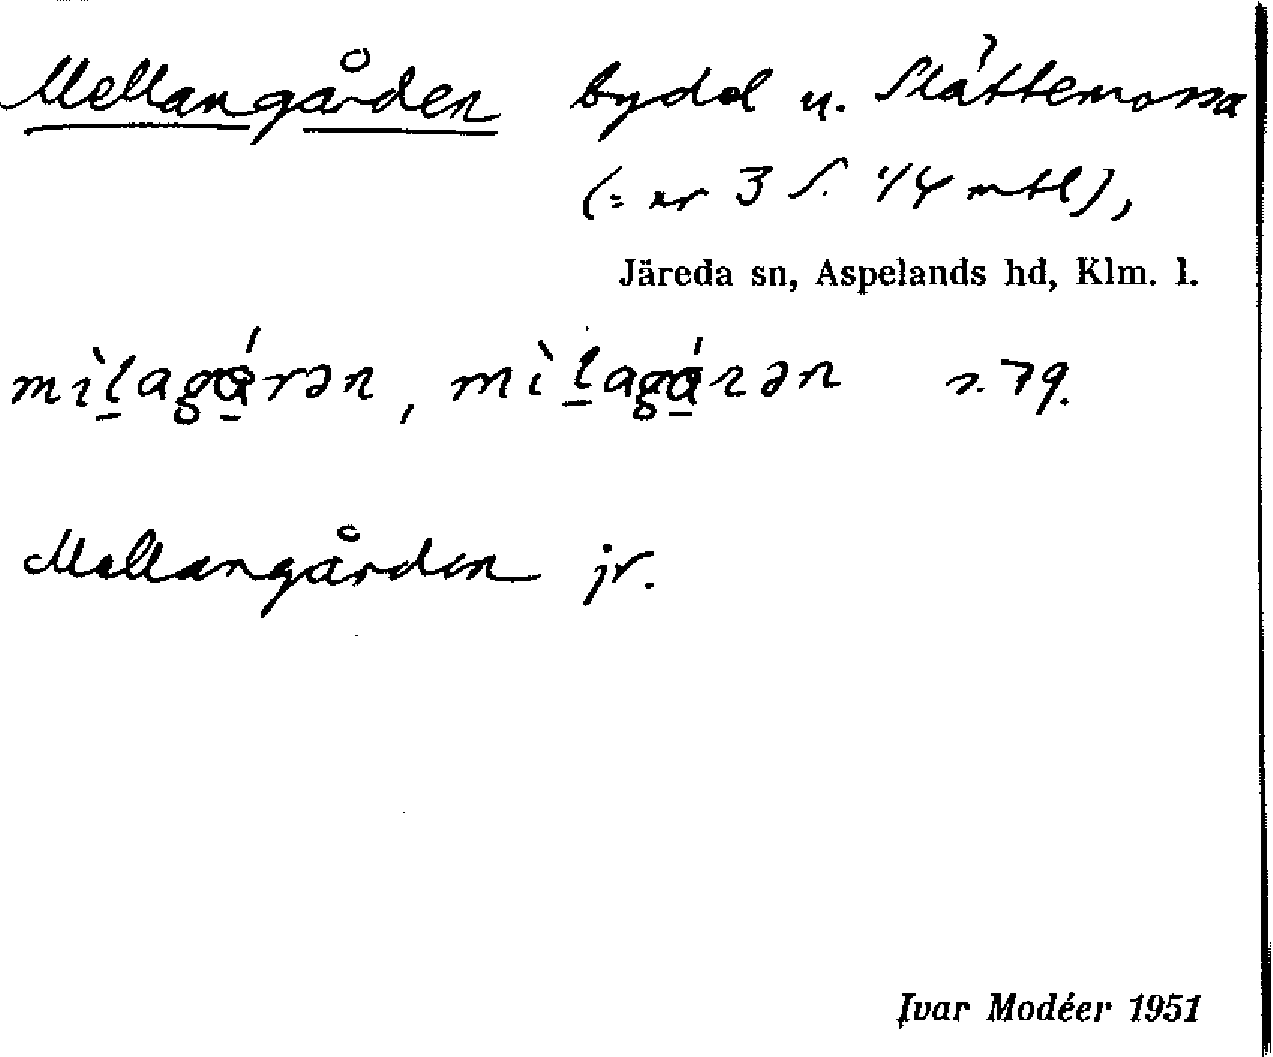 Mellangården bydel u. Slåttemossa
(= nr 3 S. 1/4 mtl),
Järeda sn, Aspelands hd, Klm. l.
mìlagárən, mìlagárən s. 79.
Mellangården jr.
Ivar Modéer 1951